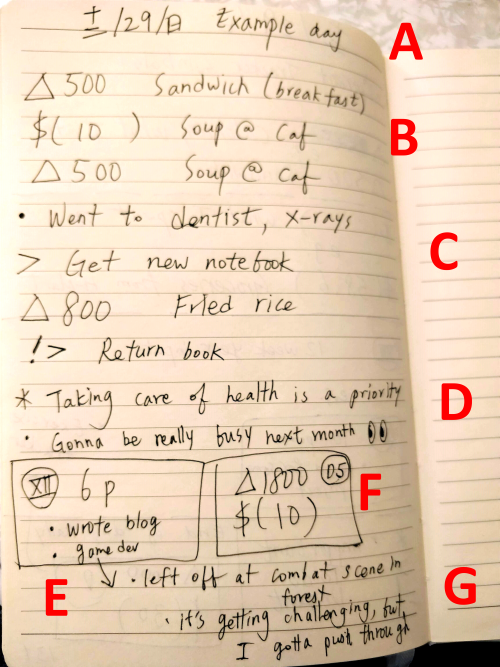 十二/29/日 Example day
A
△500 Sandwich (breakfast)
$(10 ) Soup @ caf
B
△500 Soup @ caf
• Went to dentist, x-rays
> Get new notebook
C
△800 Fried rice
!> Return book
* Taking care of health is a priority
D
• Gonna be really busy next month 👀
XII 6p
• wrote blog
• game dev
△1800 05
$(10)
F
↘ • left off at combat scene in
forest
E
G
• it's getting challenging, but
I gotta push through